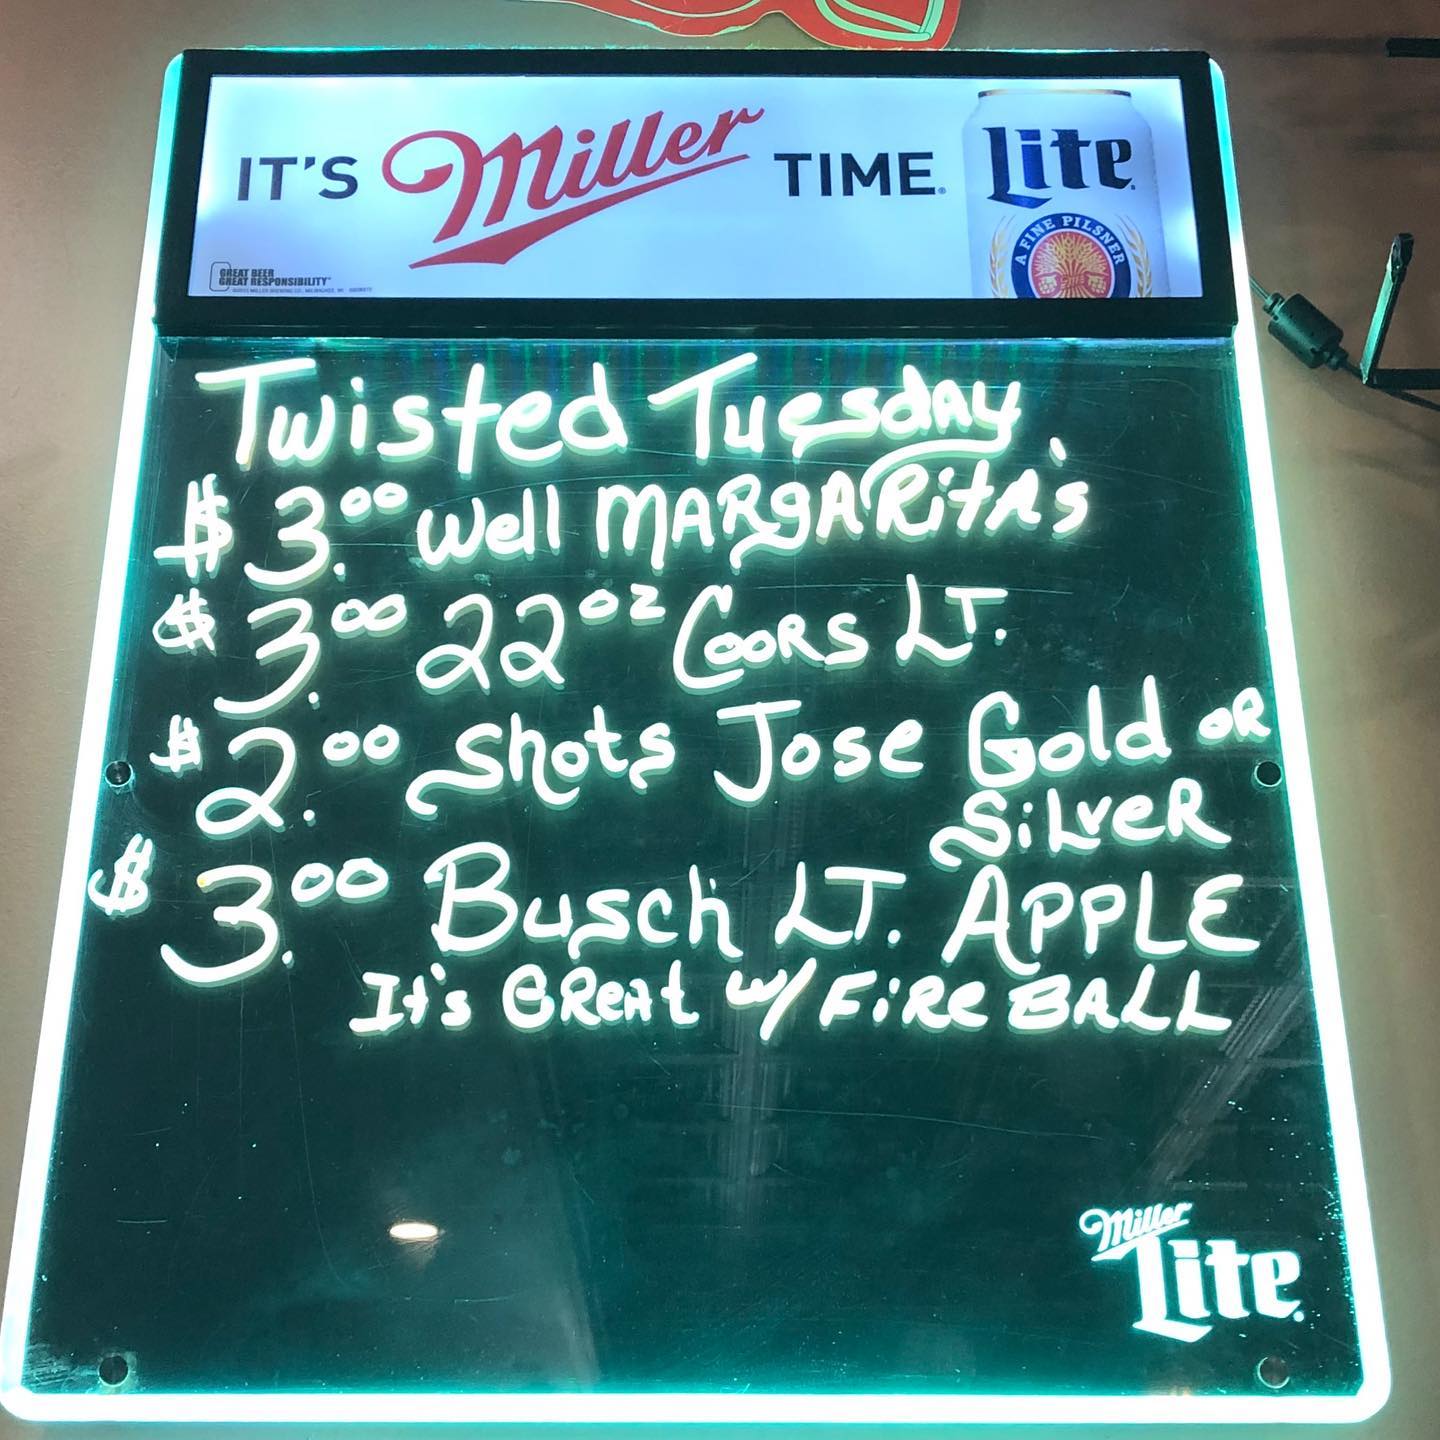 IT'S Miller TIME.
Lite
A FINE PILSNER
GREAT BEER
GREAT RESPONSIBILITY
Twisted Tuesday
$3.00 Well MARgARitA's
$3.00 22oz Coors LT.
$2.00 Shots Jose Gold OR
SiLveR
$3.00 Busch LT. APPLE
It's GReAt w/ FiRe BALL
Miller
Lite